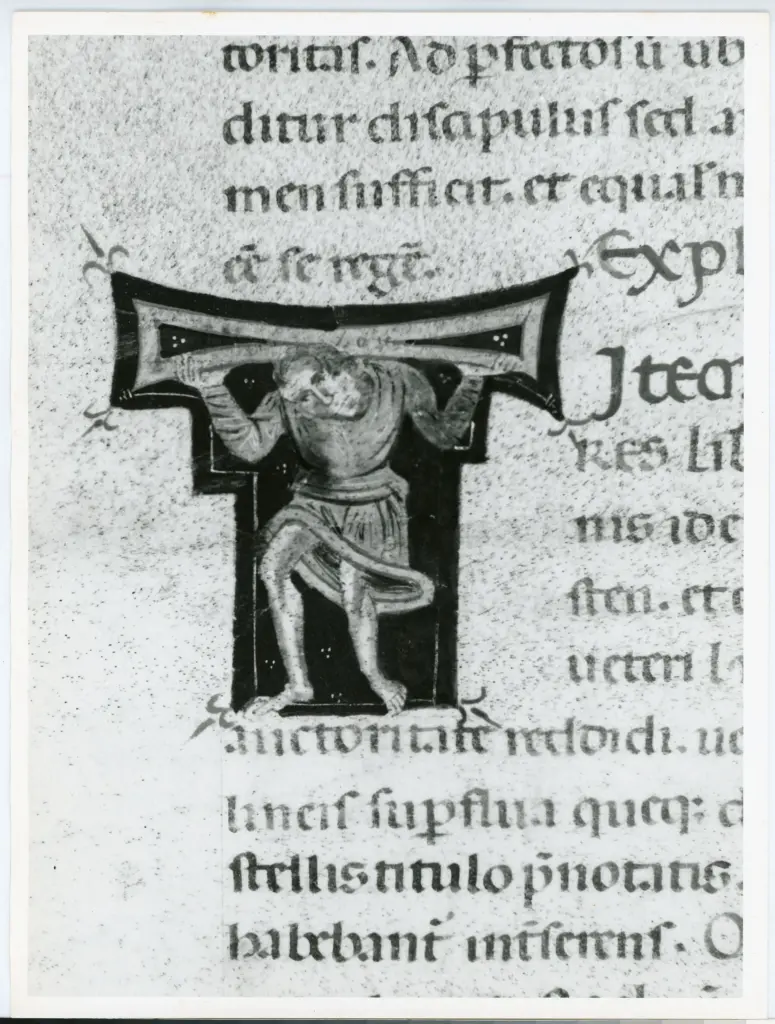 toritas. Ad pfectoru ub
ditur discipulus sed
men sufficit. et equal'
eē se regē.
Expl
T
Item
RES lib
nis ide
sten. et
ueteri
auctoritate reddidi. ue
lineis supflua queq: 
stellis titulo p̄notatis.
habebant' int̄serens. O